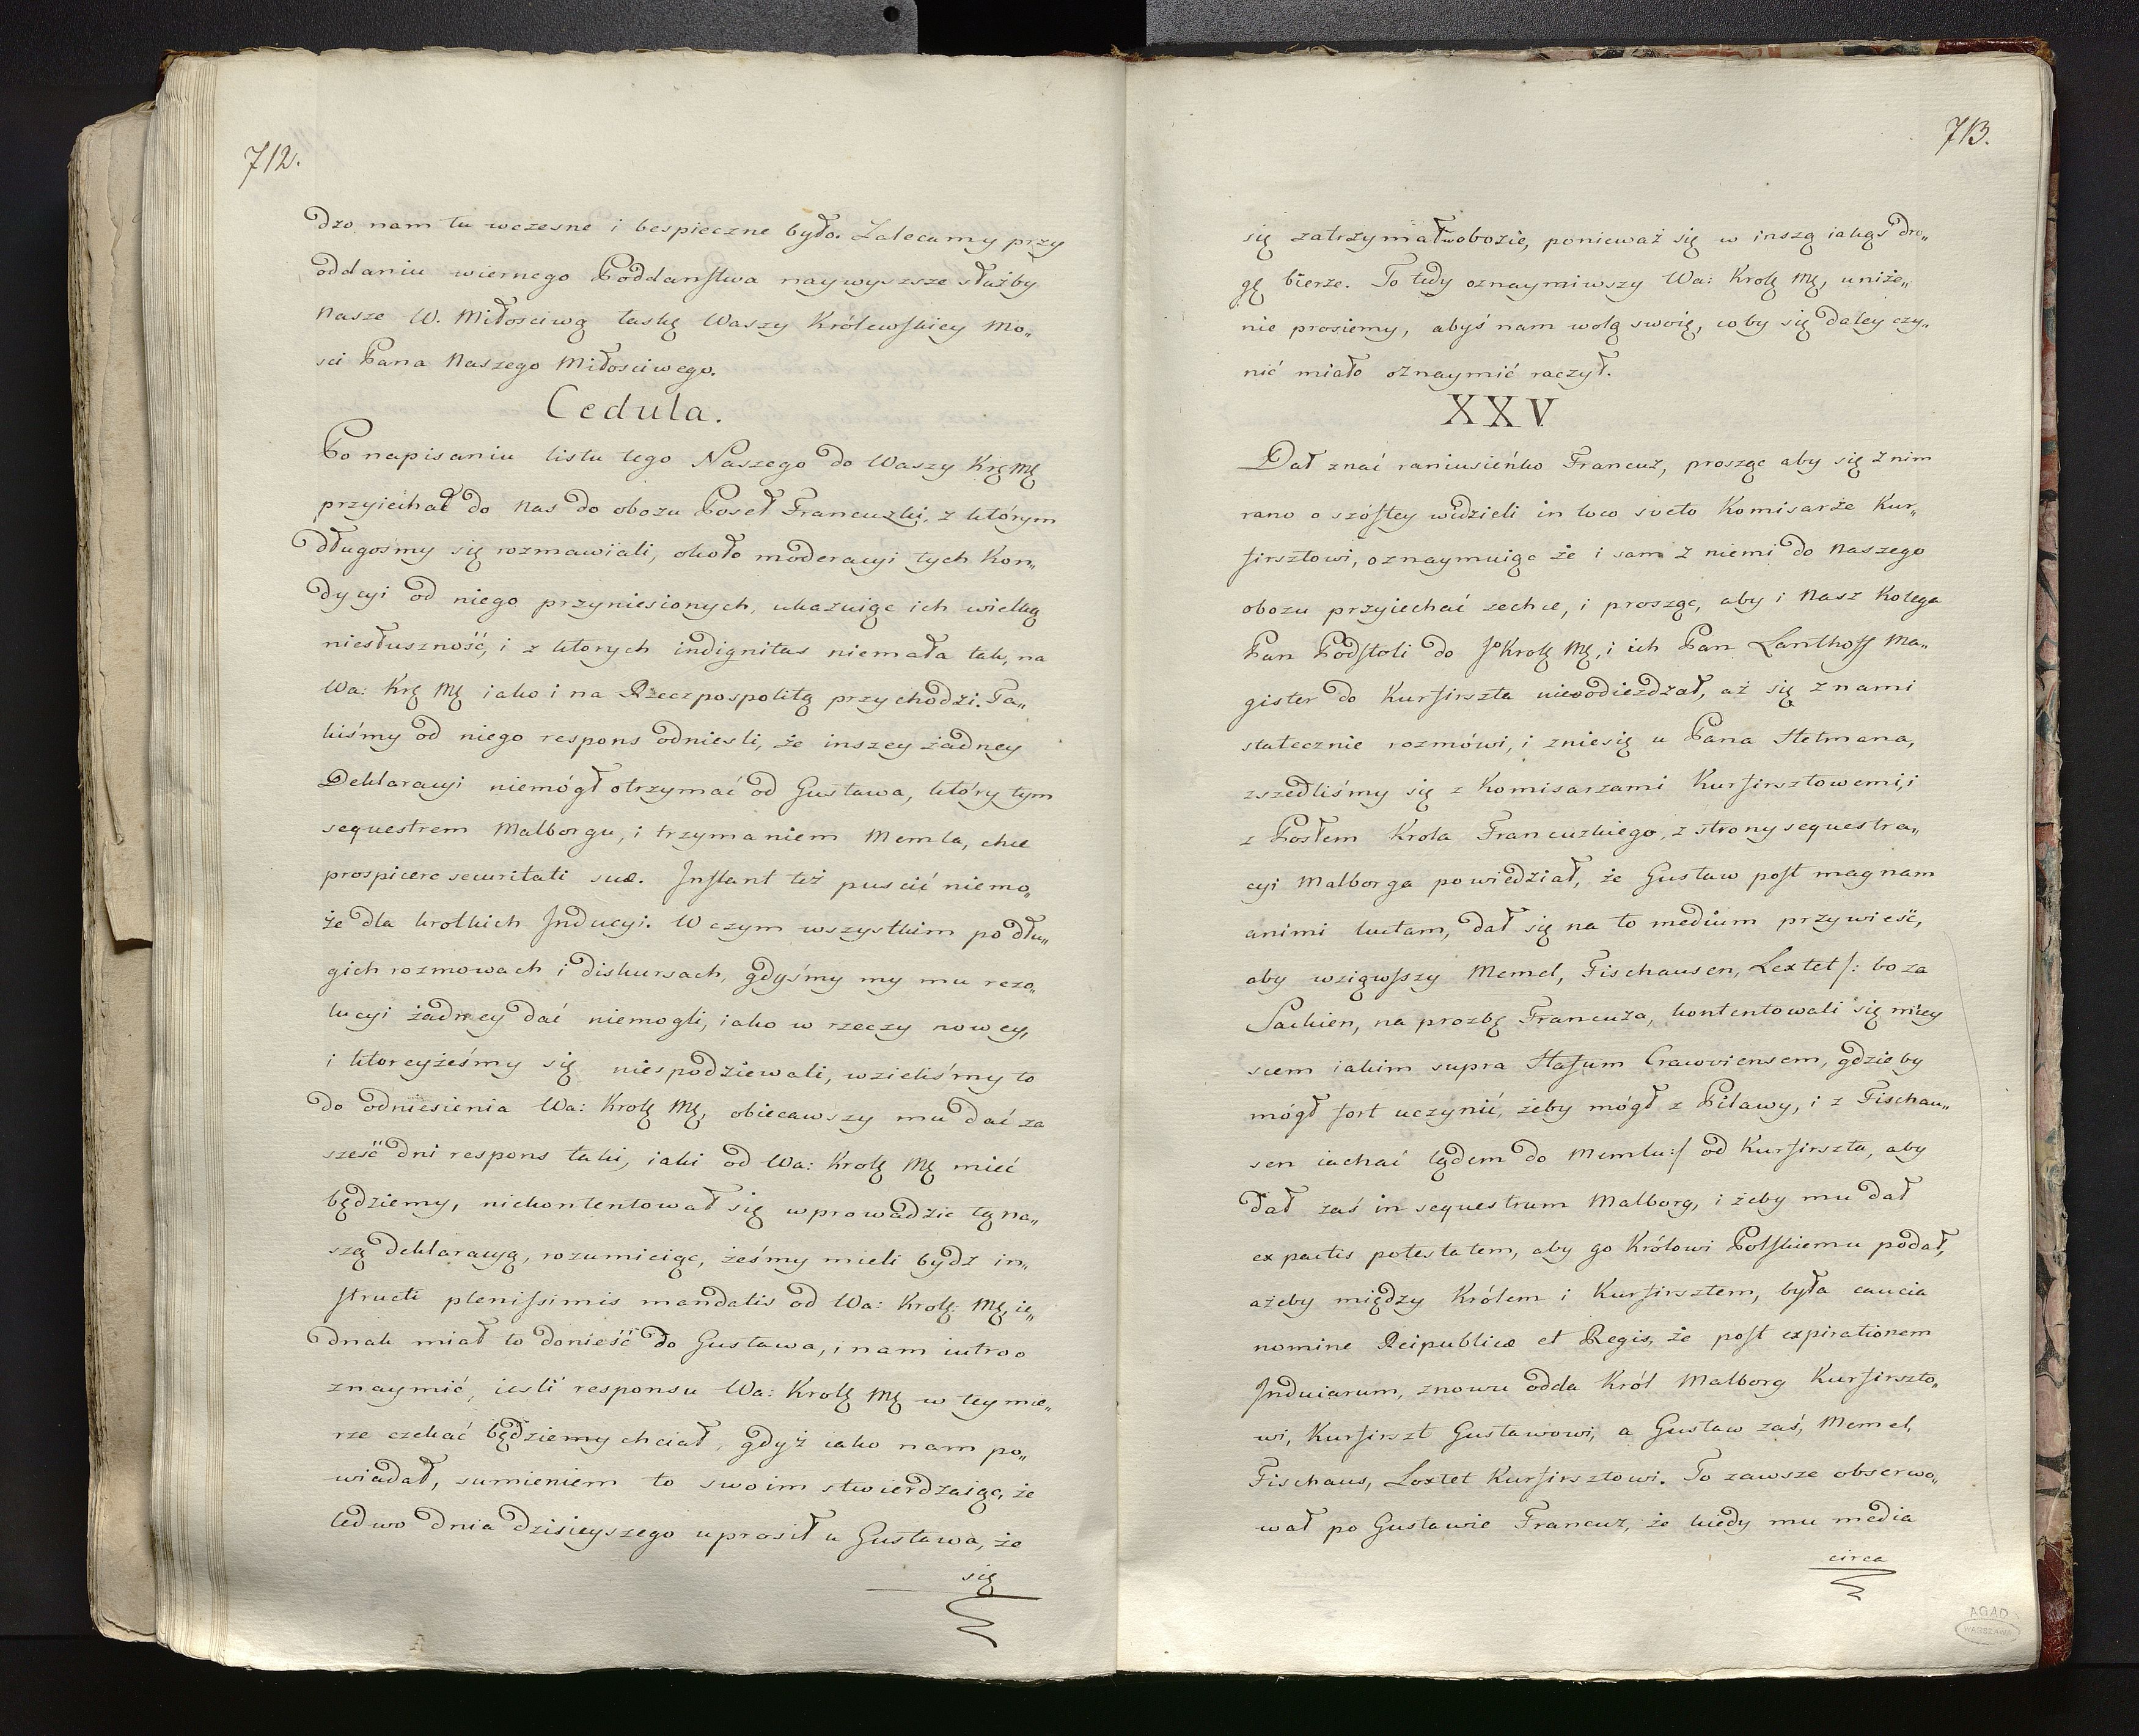 712.
dzo nam tu wczesne i bespieczne było. Zalecamy przy
oddaniu wiernego Poddanstwa naywyszsze służby
Nasze W. Miłosciwą łaskę Waszy Królewskiey Mo„
sci Pana Naszego Miłosciwego.
Cedula.
Po napisaniu listu tego Naszego do Waszy Krę Mę
przyiechał do nas do obozu Poseł Francuzki, z którym
długosmy się rozmawiali, około moderacyi tych Kon„
dycyi od niego przyniesionych, ukazuiąc ich wielką
niesłuszność, i z ktorych indignitas niemała tak, na
Wa: Krę Mę iako i na Rzeczpospolitą przychodzi. Ta„
kiśmy od niego respons odniesli, że inszey żadney
Deklaracyi niemógł otrzymać od Gustawa, który tym
sequestrem Malborgu, i trzymaniem Memla, chce
prospicere securitati suæ. Instant też puscić niemo„
że dla krotkich Inducyi. W czym wszystkim po dłu„
gich rozmowach i diskursach, gdyśmy my mu rezo„
lucyi żadney dać niemogli, iako w rzeczy nowey,
i ktoreyżeśmy się niespodziewali, wzieliśmy to
do odniesienia Wa: Krolę Mę, obiecawszy mu dać za
sześć dni respons taki, iaki od Wa: Krolę Mę mieć
będziemy, niekontentował się wprowadzie tą na„
szą deklaracyą, rozumieiąc, żeśmy mieli bydz in„
structi plenissimis mandatis od Wa: Krolę: Mę, ie„
dnak miał to donieść do Gustawa, i nam iutro o
znaymić, iesli responsu Wa: Krolę Mę w tey mie„
rze czekać będziemy chciał, gdyż iako nam po„
wiadał, sumieniem to swoim stwierdzaiąc, że
ledwo dnia dzisieyszego uprosił u Gustawa, że
się
713.
się zatrzymał w obozie, ponieważ się w inszą iakąś dro„
gę bierze. To tedy oznaymiwszy Wa: Krolę Mę, uniże„
nie prosiemy, abyś nam wolą swoię, coby się daley czy„
nić miało oznaymić raczył.
XXV
Dał znać raniusieńko Francuz, prosząc aby się z nim
rano o szóstey widzieli in loco sveto Komisarże Kur„
firsztowi, oznaymuiąc że i sam z niemi do Naszego
obozu przyiechać zechce, i prosząc, aby i Nasz Kolega
Pan Podstoli do Jº Krolę Mę, i ich Pan Lanthoff Ma„
gister do Kurfirszta nieodieżdzał, aż się z nami
statecznie rozmówi, i zniesię u Pana Hetmana,
zszedliśmy się z Komisarzami Kurfirsztowemi, i
z Posłem Krola Francuzkiego, z strony sequestra„
cyi Malborga powiedział, że Gustaw post magnam
animi luctam, dał się na to medium przywieść,
aby wziąwszy Memel, Fischausen, Lextet /: bo za
Sackien, na prozbę Francuza, kontentowali się miey
scem iakim supra Hasum Crawviensem, gdzieby
mógł fort uczynić, żeby mógł z Pilawy, i z Fischau„
sen iachać lądem do Memlu :/ od Kurfirszta, aby
dał zaś in sequestrum Malborg, i żeby mu dał
ex pactis potestatem, aby go Królowi Polskiemu podał,
ażeby między Królem i Kurfirsztem, była caucia
nomine Reipublicæ et Regis, że post expirationem
Induiarum, znowu odda Król Malborg Kurfirszto„
wi, Kurfirszt Gustawowi, a Gustaw zaś, Memel,
Fischaus, Loxtet Kurfirsztowi. To zawsze obserwo„
wał po Gustawie Francuz, że kiedy mu media
circa
AGAD
WARSZAWA